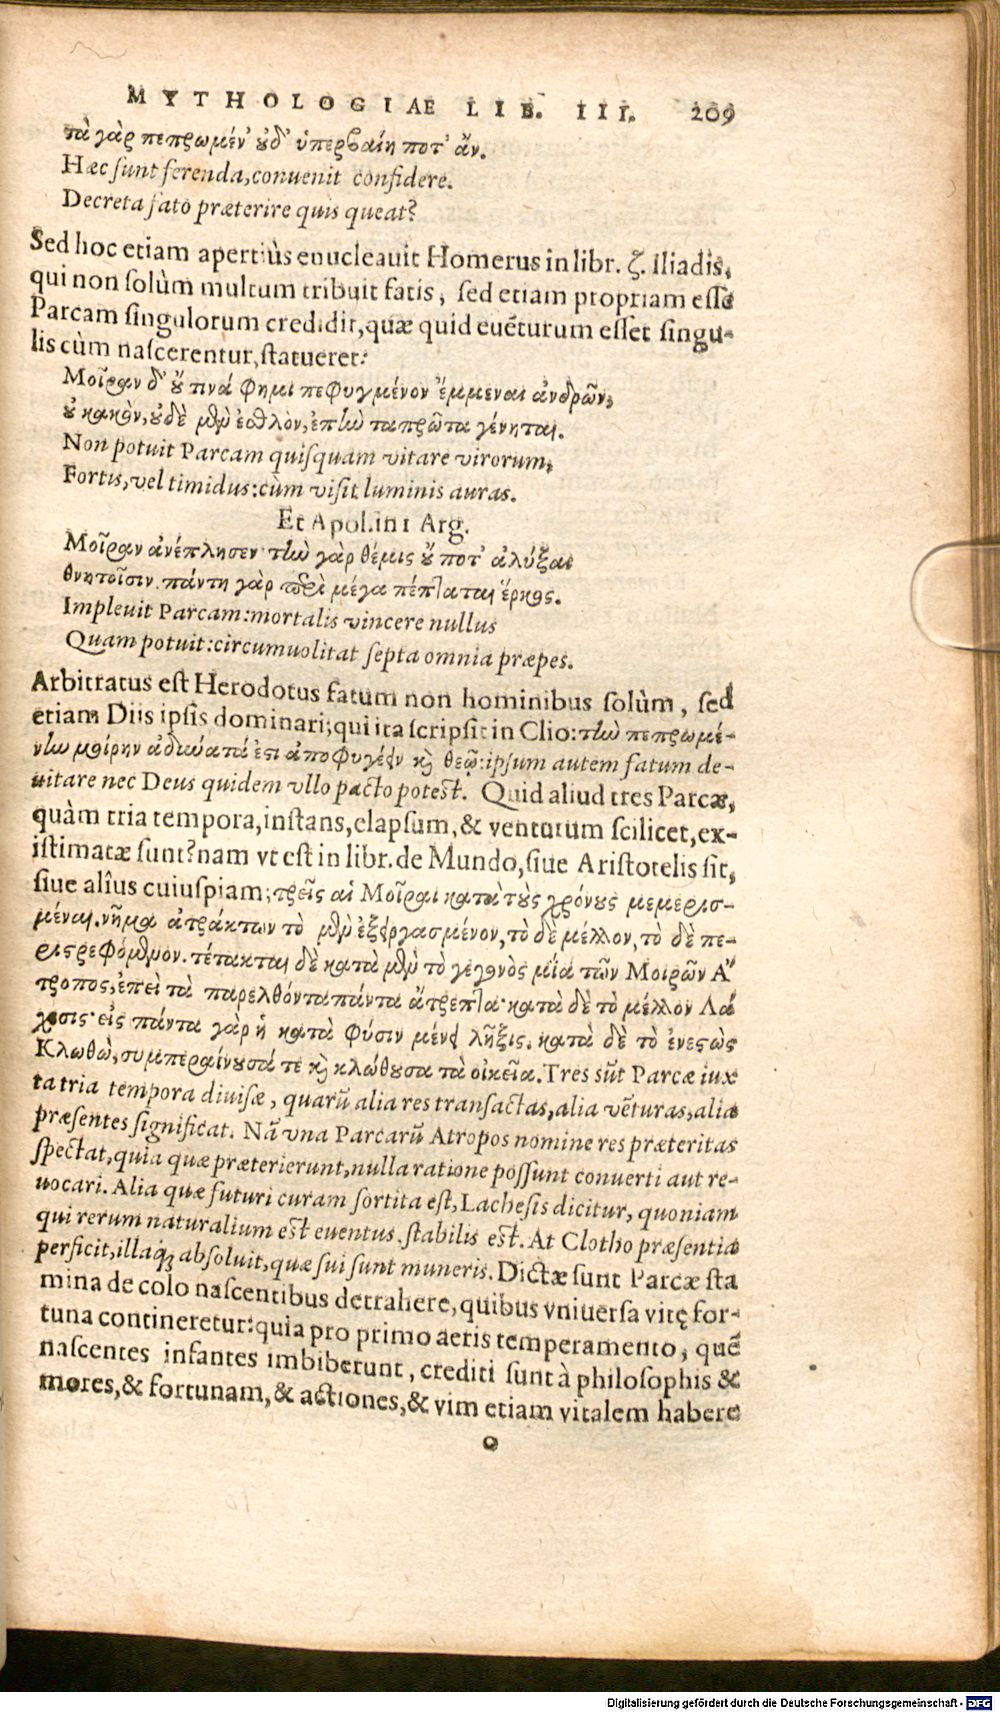 MYTHOLOGIAE LIB. III. 209
τὰ γὰρ πεπρωμέν' ȣ̓δ' ὑπερβαίη ποτ' ἄν.
Hæc sunt ferenda, conuenit confidere.
Decreta fato præterire quis queat?
Sed hoc etiam apertiùs enucleauit Homerus in libr. ζ. Iliadis,
qui non solùm multum tribuit fatis, sed etiam propriam esse
Parcam singulorum credidit, quæ quid euẽturum esset singu-
lis cùm nascerentur, statueret:
Μοῖραν δ' ȣ̓́ τινά φημι πεφυγμένον ἔμμεναι ἀνδρῶν,
ȣ̓ κακὸν, ȣ̓δὲ μὲν ἐσθλὸν, ἐπὴν ταπρῶτα γένηται.
Non potuit Parcam quisquam vitare virorum,
Fortis, vel timidus: cùm visit luminis auras.
Et Apol. in 1 Arg.
Μοῖραν ἀνέπλησεν· τὴν γὰρ θέμις ȣ̓́ ποτ' ἀλύξαι
θνητοῖσιν. πάντη γὰρ περὶ μέγα πέπταται ἕρκος.
Impleuit Parcam: mortalis vincere nullus
Quam potuit: circumuolitat septa omnia præpes.
Arbitratus est Herodotus fatum non hominibus solùm, sed
etiam Diis ipsis dominari; qui ita scripsit in Clio: τὴν πεπρωμέ-
νην μοίρην ἀδύνατά ἐστι ἀποφυγέειν καὶ θεῷ: ipsum autem fatum de-
uitare nec Deus quidem vllo pacto potest. Quid aliud tres Parcæ,
quàm tria tempora, instans, elapsum, & venturum scilicet, ex-
istimatæ sunt? nam vt est in libr. de Mundo, siue Aristotelis sit,
siue alîus cuiuspiam; τρεῖς αἱ Μοῖραι κατὰ τȣ̀ς χρόνȣς μεμερισ-
μέναι. νῆμα ἀτράκτων τὸ μὲν ἐξειργασμένον, τὸ δὲ μέλλον, τὸ δὲ πε-
ριστρεφόμενον. τέτακται δὲ κατὰ μὲν τὸ γεγονὸς μία τῶν Μοιρῶν Ἄ
τροπος, ἐπεὶ τὰ παρελθόντα πάντα ἄτρεπτα· κατὰ δὲ τὸ μέλλον Λά
χεσις· εἰς πάντα γὰρ ἡ κατὰ φύσιν μένει λῆξις. κατὰ δὲ τὸ ἐνεστὼς
Κλωθὼ, συμπεραίνȣσά τε καὶ κλώθȣσα τὰ οἰκεῖα. Tres sũt Parcæ iux
ta tria tempora diuisæ, quarũ alia res transactas, alia vẽturas, alia
præsentes significat. Nã vna Parcarũ Atropos nomine res præteritas
spectat, quia quæ præterierunt, nulla ratione possunt conuerti aut re-
uocari. Alia quæ futuri curam sortita est, Lachesis dicitur, quoniam
qui rerum naturalium est euentus. stabilis est. At Clotho præsentia
perficit, illaq; absoluit, quæ sui sunt muneris. Dictæ sunt Parcæ sta
mina de colo nascentibus detrahere, quibus vniuersa vitę for-
tuna contineretur: quia pro primo aeris temperamento, quẽ
nascentes infantes imbiberunt, crediti sunt à philosophis &
mores, & fortunam, & actiones, & vim etiam vitalem habere
o
Digitalisierung gefördert durch die Deutsche Forschungsgemeinschaft - DFG